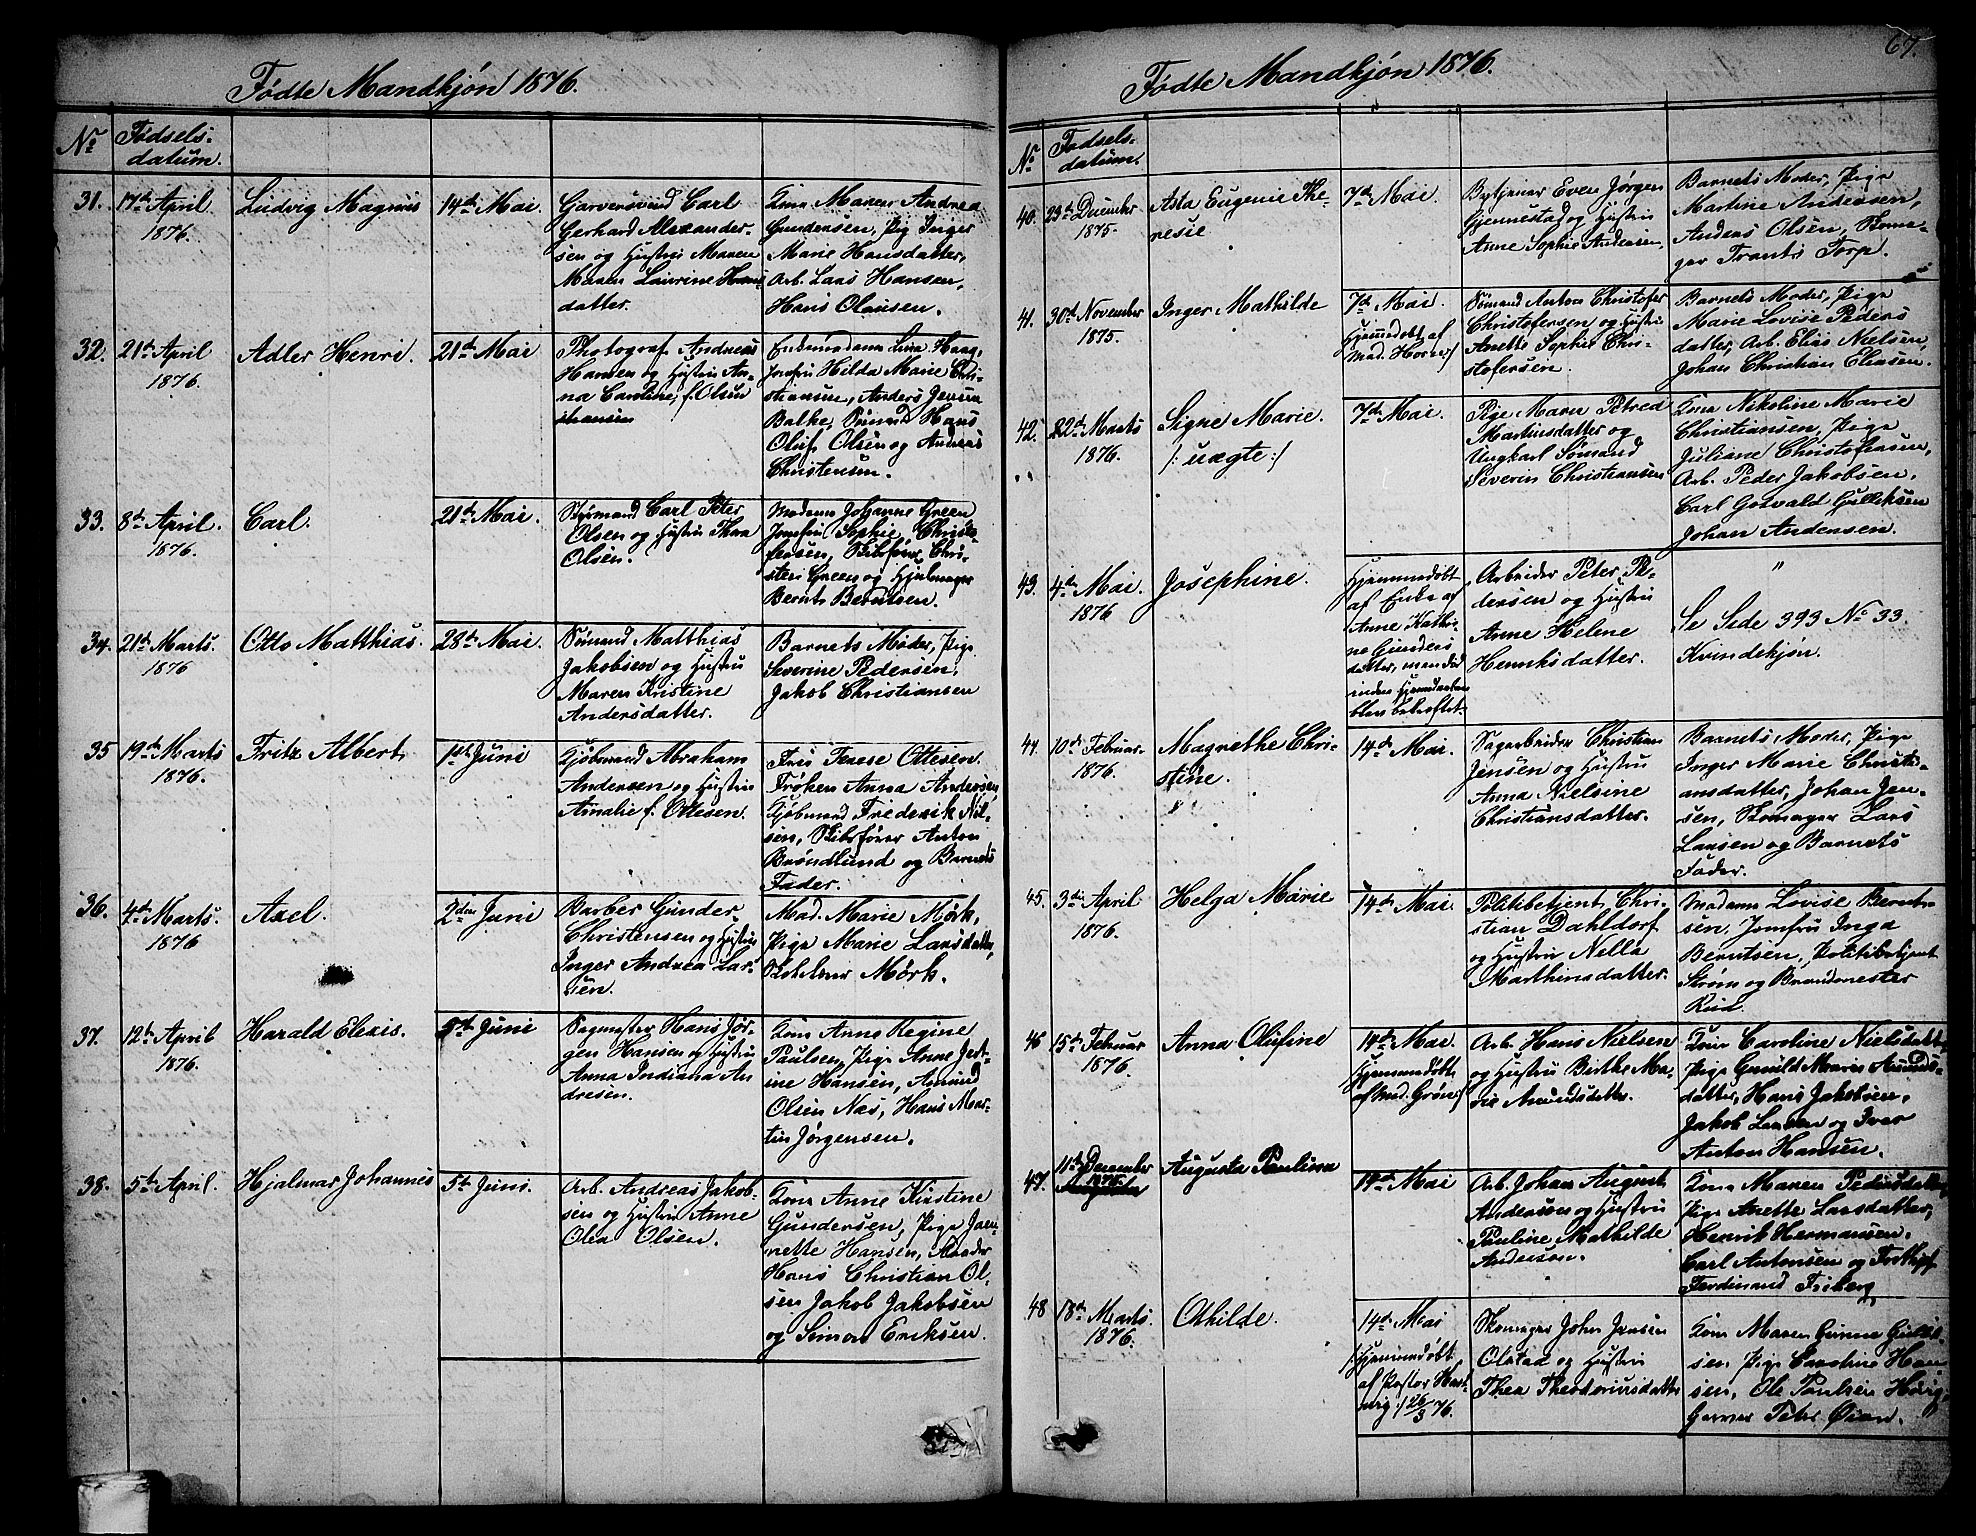 Fødte Mandkjøn 1876.
No
Fødsels-
datum.
31.
17de April
1876.
Ludvig Magnus
14de Mai.
Garversvend Carl
Gerhard Alexander-
sen og Hustru Maren
Maren Laurine Hans
datter.
Kone Maren Andrea
Gundersen, Pig Inger
Marie Hansdatter,
Arb. Lars Hansen,
Hans Olausen.
32.
21de April
1876.
Adler Henri.
21de Mai
Photograf Andreas
Hansen og Hustru An-
na Caroline, f. Olsen
Enkemadame Lina Haag,
Jomfru Hilda Marie Chri-
stiansen, Anders Jensen
Balke, Sømand Hans
Oluf Olsen og Andreas
Christensen.
33.
8de April.
1876.
Carl.
21de Mai.
Styrmand Carl Peter
Olsen og Hustru Thora
Olsen.
Madame Johanne Green
Jomfru Sophie Christo-
fersen, Skibsfører Chri-
sten Green og Hjulmager
Bernts Berntsen.
34.
21de Marts.
1876
Otto Matthias.
28de Mai.
Sømand Matthias
Jakobsen og Hustru
Maren Kristine
Andersdatter.
Barnets Moder, Pige
Severine Pedersen,
Jakob Christiansen
35
19de Marts
1876.
Fritz Albert
1ste Juni
Kjøbmand Abraham
Andersen og Hustru
Amalie f. Ottesen.
Fru Terese Ottesen.
Frøken Anna Andersen
Kjøbmand Frederik Nil-
sen, Skibsfører Anton
Brøndlund og Barnets
Fader.
36.
4de Marts.
1876
Axel.
2den Juni
Barber Gunder
Christensen og Hustru
Inger Andrea Lar-
sen.
Mad. Marie Mørk,
Pige Marie Larsdatter,
Mørk.
37.
12te April
1876.
Harald Elexis.
5te Juni
Sagmester Hans Jør-
gen Hansen og Hustru
Anna Indiana An
dresen.
Kone Anne Regine
Paulsen, Pige Anne Jest-
ine Hansen, Amund
Olsen Næs, Hans Mar-
tin Jørgensen.
38.
5te April.
Hjalmar Johannes
5te Juni.
Arb. Andreas Jakob-
sen og Hustru Anne
Olea Olsen.
Kone Anne Kirstine
Gundersen, Pige Jean-
nette Hansen,
Hans Christian Ol-
sen Jakob Jakobsen
og Simon Eriksen.
67.
Fødte Mandkjøn 1876.
No
Fødsels-
datum.
40.
23de December
1875.
Asta Eugenie The-
resie
7de Mai.
Bytjener Even Jørgen
Gjennestad og Hustru
Anne Sophie Andersen
Barnets Moder, Pige
Martine Andersen,
Anders Olsen, Skoma-
ger Frants Torp.
41.
30te November
1875.
Inger Mathilde
7de Mai.
Hjemmedøbt af
Mad. Horne:/
Sømand Anton Christofer
Christofersen og Hustru
Anette Sophie Chri-
stofersen.
Barnets Moder, Pige
Marie Lovise Peders
datter, Arb. Elias Nielsen,
Johan Christian Eliasen.
42.
22de Marts
1876.
Signe Marie.
/: uægte :/
7de Mai.
Pige Maren Petrea
Martinsdatter og
Ungkarl Sømand
Severin Christiansen
Kone Nikoline Marie
Christiansen, Pige
Juliane Christofersen,
Arb. Peder Jakobsen.
Carl Gotvald Gulliksen
Johan Andersen.
43.
4de Mai.
1876
Josephine.
Hjemmedøbt
af Enke af
Anne Kathri-
ne Gunders
datter, men død
inden Hjemmedaaben
blev bekræftet.
Arbeider Peter Pe-
dersen og Hustru
Anne Helene
Henriksdatter.
"
Se Side 393 No 33.
Kvindekjøn.
44.
10de Februar
1876.
Magrethe Chri-
stine.
14de Mai.
Sagarbeider Christian
Jensen og Hustru
Anna Nielsine
Christiansdatter.
Barnets Moder, Pige
Inger Marie Christi-
ansdatter, Johan Jen-
sen, Skomager Lars
Larsen og Barnets
Fader.
45.
3die April
1876.
Helga Marie
14de Mai.
Politibetjent Chri-
stian Dahldorf
og Hustru Nella
Marthinsdatter.
Madame Lovise Bernt-
sen, Jomfru Inga
Berntsen, Politibetjent
Strøm og Brandmester
Rud.
46
15de Februar
1876.
Anna Olufine
14de Mai.
Hjemmedøbt
af Mad. Grøn:/
Arb. Hans Nielsen
og Hustru Birthe Ma-
rie Amundsdatter.
Kone Caroline Nielsdatter
Pige Gunild Maria Amunds-
datter, Hans Jakobsen,
Jakob Larsen og Iver
Anton Hansen.
47.
11te December
1875.
Augusta Paulina
14de Mai
Arb. Johan August
Andersson og Hustru
Pauline Mathilde
Anderson.
Kone Maren Pedersdatter
Pige Anette Larsdatter,
Henrik Hermansen.
Carl Antonsen og
Ferdinand Friberg,
48
18de Marts.
1876.
Othilde.
14de Mai
/:Hjemmedøbt
af Pastor Hart-
vig:/ 26/3 76.
Skomager John Jensen
Ølstad og Hustru
Thea Theodoriusdatter
Kone Maren Gurine Gulik-
sen, Pige Caroline Han
sen, Ole Paulsen Haug,
Garver Peter Øian.